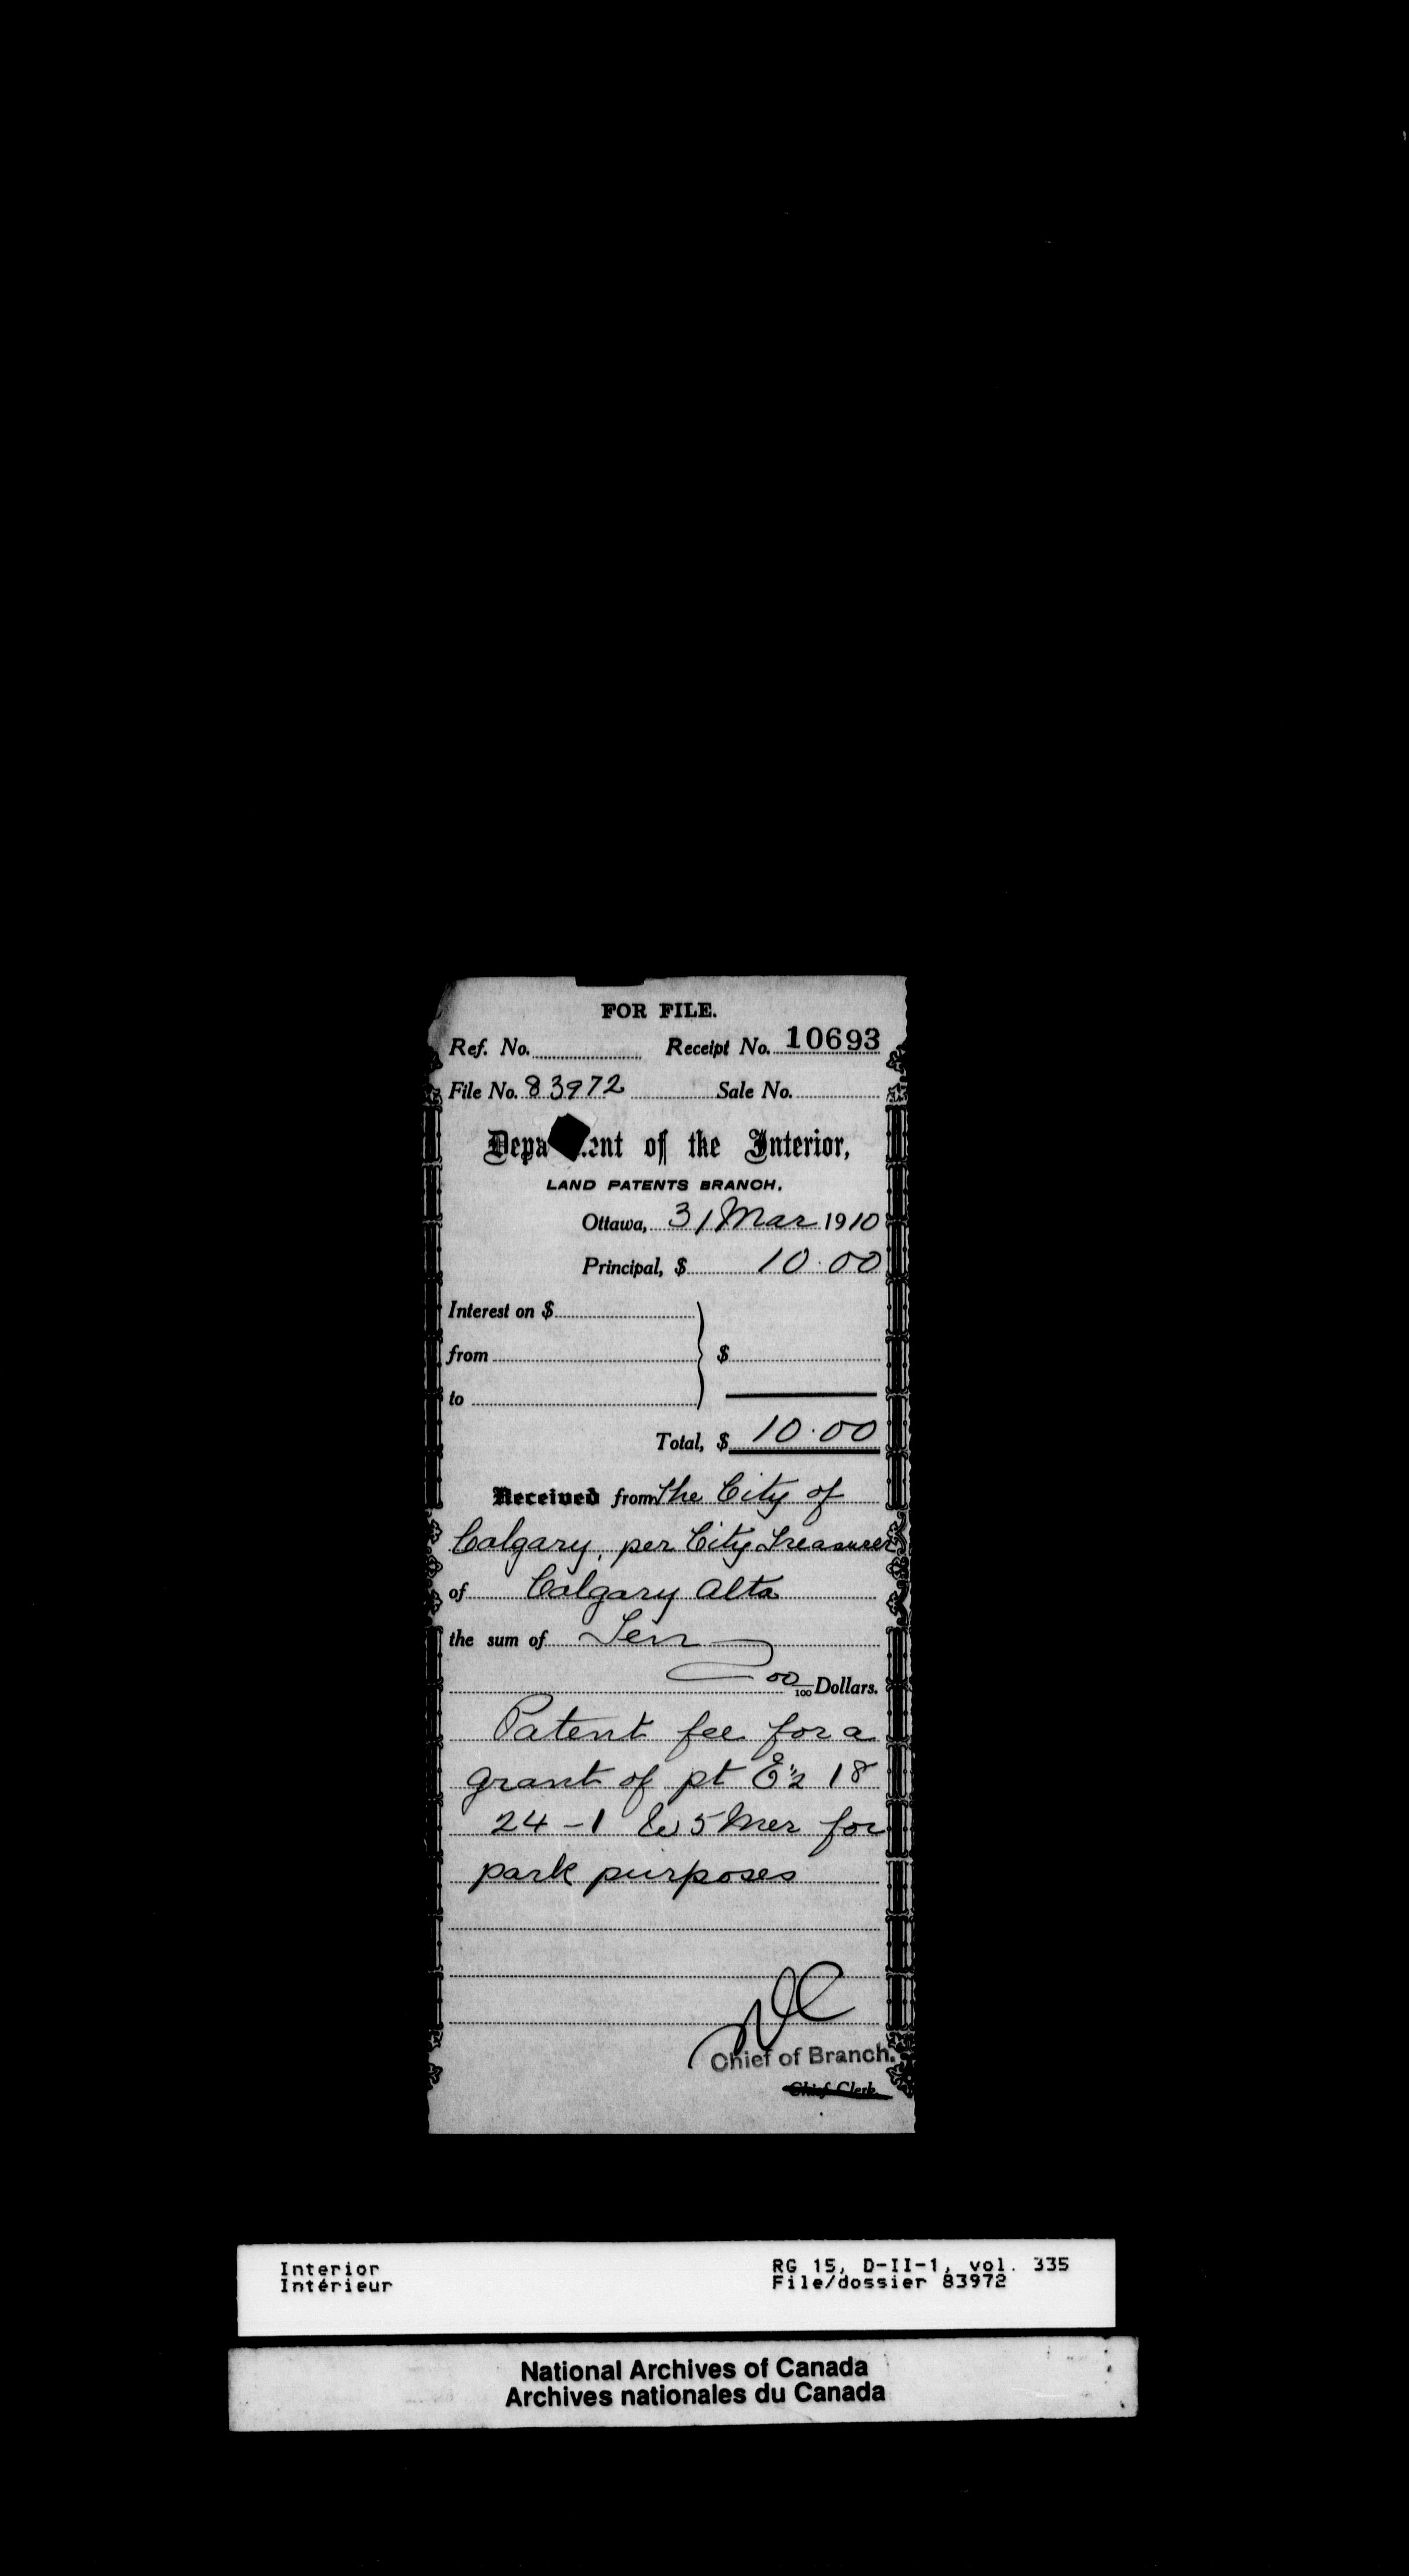 FOR FILE.
Ref. No. Receipt No. 10693
File No. 83972 Sale No.
Depa ent of the Interior,
LAND PATENTS BRANCH.
Ottawa, 31 Mar 1910
Principal, $ 10.00
Interest on $
from $
to
Total, $ 10.00
Received from The City of
Calgary, per City Treasurer
of Calgary Alta
the sum of Ten
00/100 Dollars.
Patent fee for a
grant of pt E½ 18
24-1 W5 Mer for
park purposes
Chief of Branch.
Chief Clerk.
Interior RG 15, D-II-1, vol. 335
Intérieur File/dossier 83972
National Archives of Canada
Archives nationales du Canada